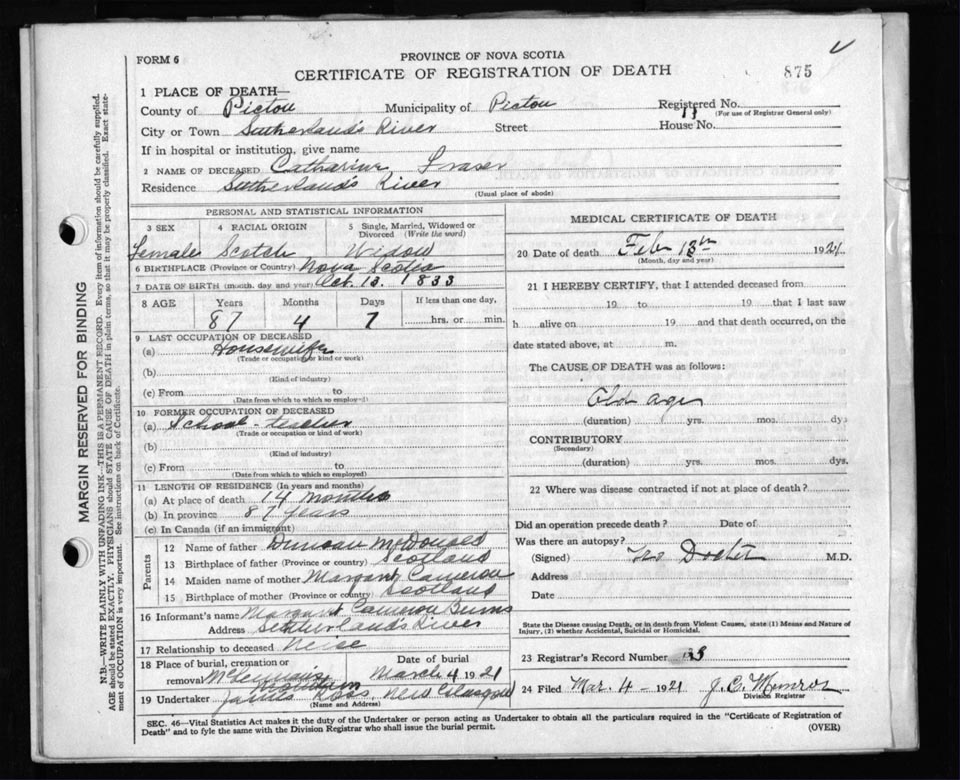 FORM 6
PROVINCE OF NOVA SCOTIA
CERTIFICATE OF REGISTRATION OF DEATH
875
1 PLACE OF DEATH—
County of Pictou Municipality of Pictou Registered No.
(For use of Registrar General only)
City or Town Sutherland's River Street House No.
If in hospital or institution, give name
2 NAME OF DECEASED Catharine Fraser
Residence Sutherland's River
(Usual place of abode)
PERSONAL AND STATISTICAL INFORMATION
3 SEX 4 RACIAL ORIGIN 5 Single, Married, Widowed or Divorced (Write the word)
Female Scotch Widow
6 BIRTHPLACE (Province or Country) Nova Scotia
7 DATE OF BIRTH (month, day and year) Oct. 1833
8 AGE Years Months Days If less than one day,
87 4 7 hrs. or min.
9 LAST OCCUPATION OF DECEASED
(a) Housewife
(Trade or occupation or kind of work)
(b)
(Kind of industry)
(c) From to
(Date from which to which so employed)
10 FORMER OCCUPATION OF DECEASED
(a) School-teacher
(Trade or occupation or kind of work)
(b)
(Kind of industry)
(c) From to
(Date from which to which so employed)
11 LENGTH OF RESIDENCE (In years and months)
(a) At place of death 14 months
(b) In province 87 years
(c) In Canada (if an immigrant)
Parents
12 Name of father Duncan McDonald
13 Birthplace of father (Province or country) Scotland
14 Maiden name of mother Margaret Cameron
15 Birthplace of mother (Province or country) Scotland
16 Informant's name Margaret Cameron Burns
Address Sutherland's River
17 Relationship to deceased Neise
18 Place of burial, cremation or removal McLennan's Mountain
Date of burial March 4 1921
19 Undertaker James Ross New Glasgow
(Name and Address)
MEDICAL CERTIFICATE OF DEATH
20 Date of death Feb 13th 1921
(Month, day and year)
21 I HEREBY CERTIFY, that I attended deceased from
19 to 19 that I last saw
h alive on 19 and that death occurred, on the
date stated above, at m.
The CAUSE OF DEATH was as follows:
Old age
(duration) yrs. mos. dys
CONTRIBUTORY
(Secondary)
(duration) yrs. mos. dys.
22 Where was disease contracted if not at place of death?
Did an operation precede death? Date of
Was there an autopsy?
(Signed) No Doctor M.D.
Address
Date
State the Disease causing Death, or in death from Violent Causes, state (1) Means and Nature of
Injury, (2) whether Accidental, Suicidal or Homicidal.
23 Registrar's Record Number
24 Filed Mar. 4 - 1921 J. C. Munroe
Division Registrar
SEC. 46—Vital Statistics Act makes it the duty of the Undertaker or person acting as Undertaker to obtain all the particulars required in the "Certificate of Registration of
Death" and to fyle the same with the Division Registrar who shall issue the burial permit.
(OVER)
MARGIN RESERVED FOR BINDING
N.B.—WRITE PLAINLY WITH UNFADING INK—THIS IS A PERMANENT RECORD. Every item of information should be carefully supplied.
AGE should be stated EXACTLY. PHYSICIANS should STATE CAUSE OF DEATH in plain terms, so that it may be properly classified. Exact statement
of OCCUPATION is very important. See instructions on back of Certificate.